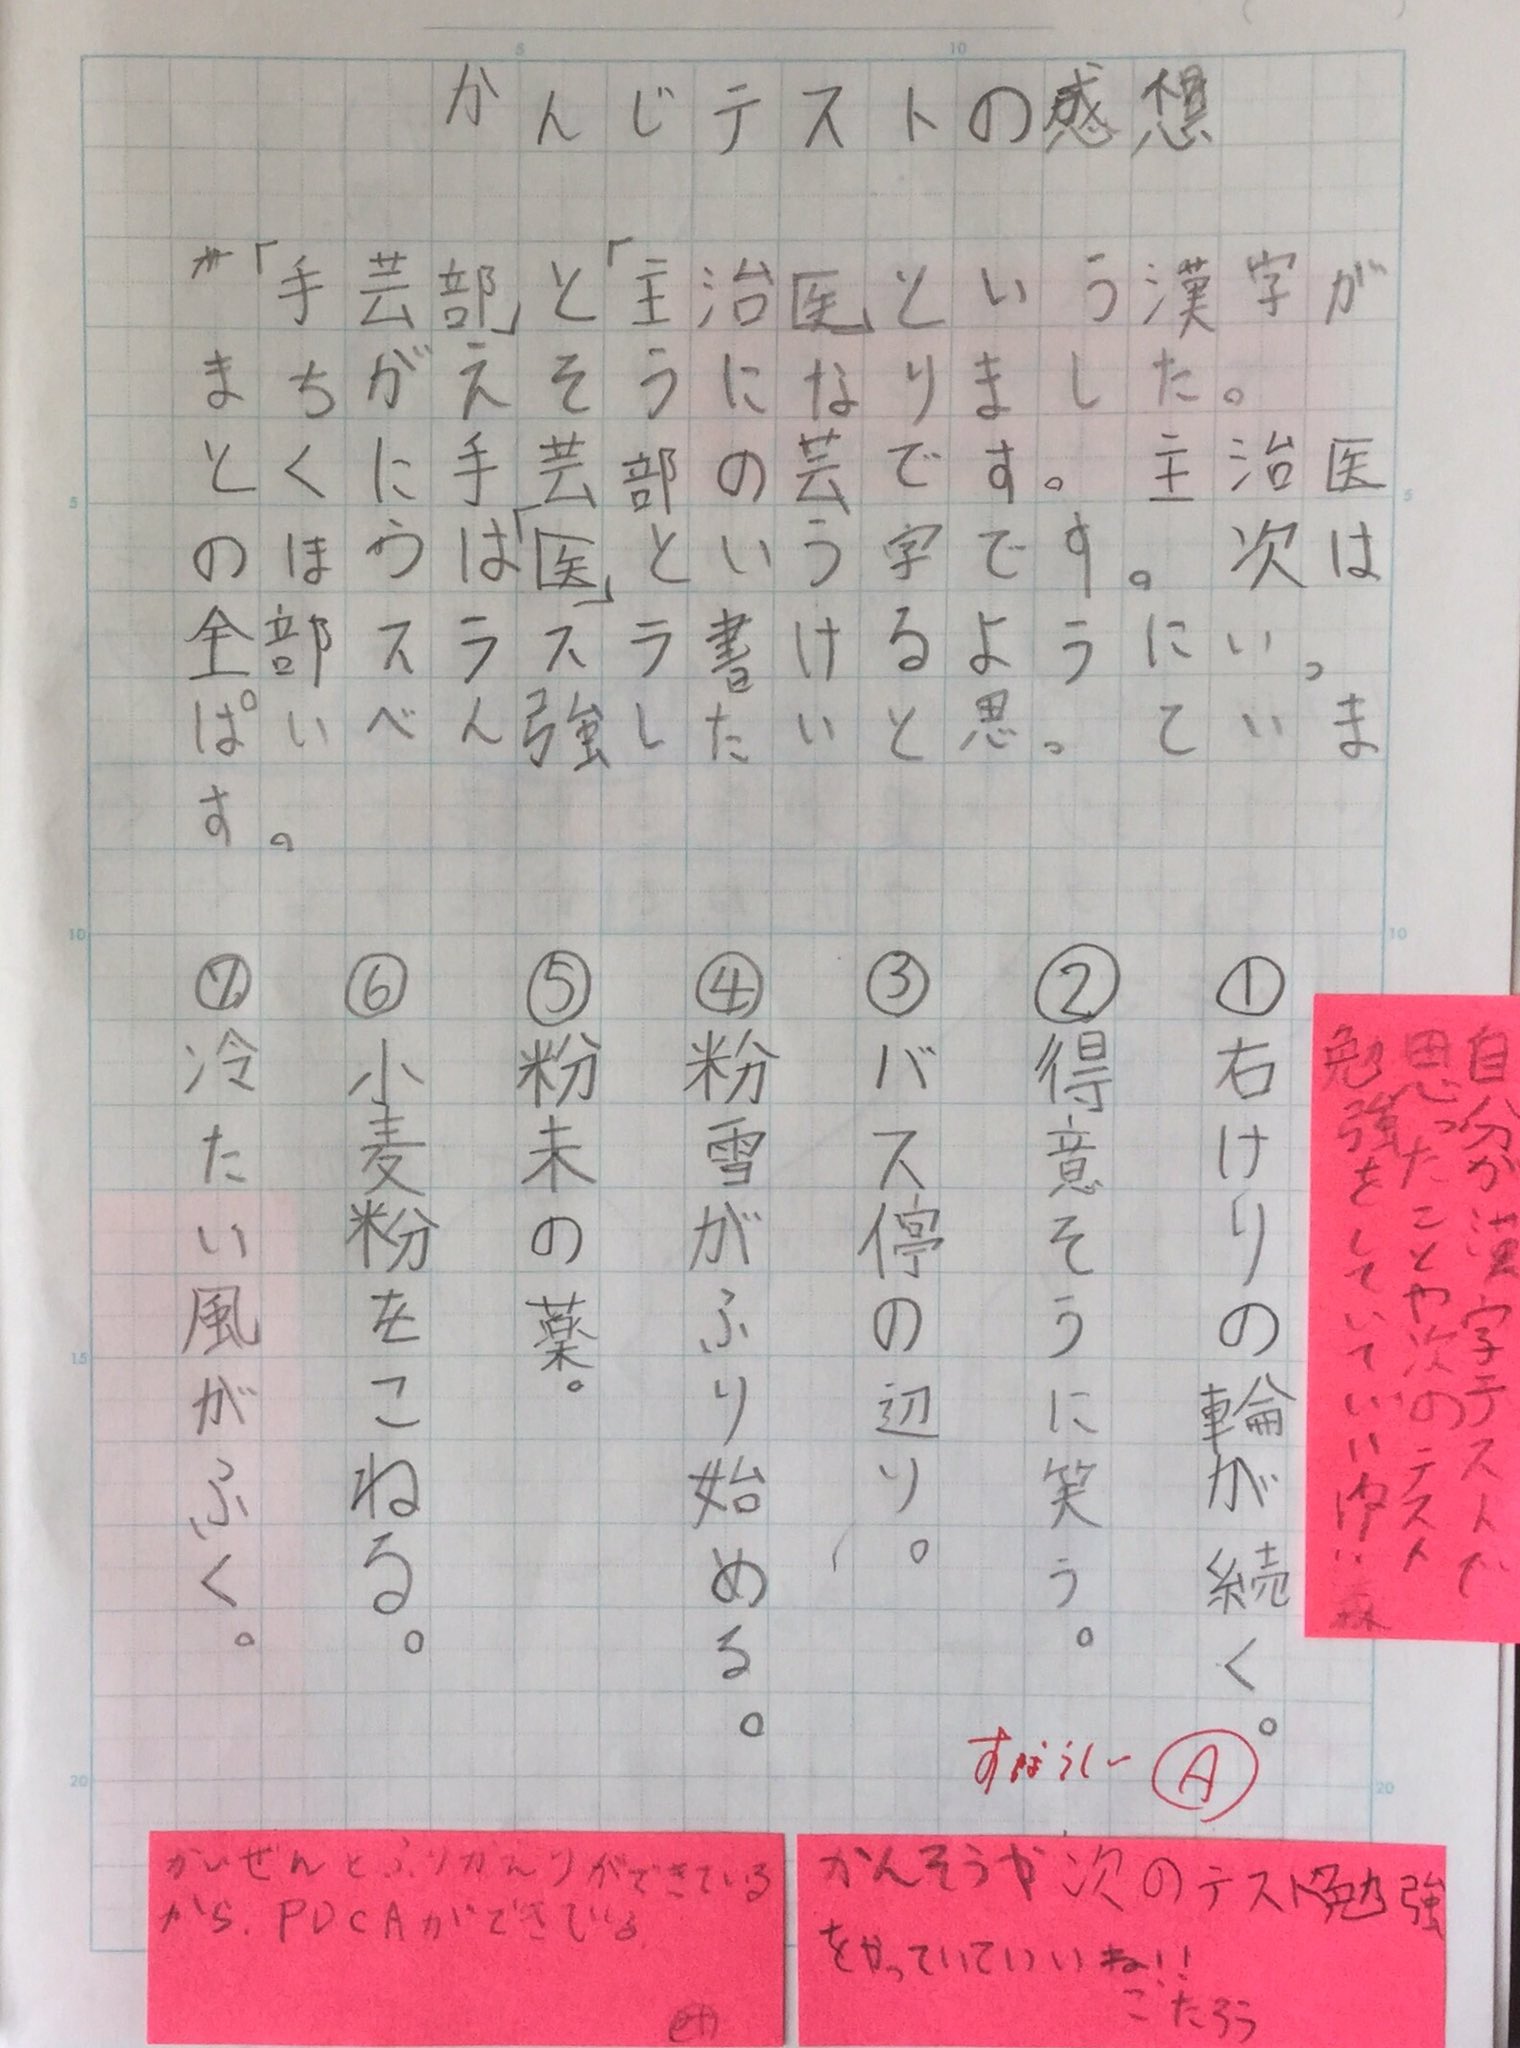 かんじテストの感想
「手芸部」と「主治医」という漢字が
まちがえそうになりました。
とくに手芸部の芸です。主治医
のほうは「医」という字です。次は
全部スラスラ書けるようにいっ
ぱいべん強したいと思っていま
す。
①右けりの輪が続く。
②得意そうに笑う。
③バス停の辺り。
④粉雪がふり始める。
⑤粉末の薬。
⑥小麦粉をこねる。
⑦冷たい風がふく。
自分が漢字テストで
思ったことや次のテスト
勉強をしていていい
森
A
かいぜんとふりかえりができている
から、PDCAができている
かんそうや次のテスト勉強
をやっていていいね!!
こたろう